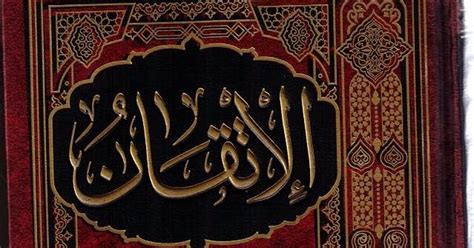 الإتقان